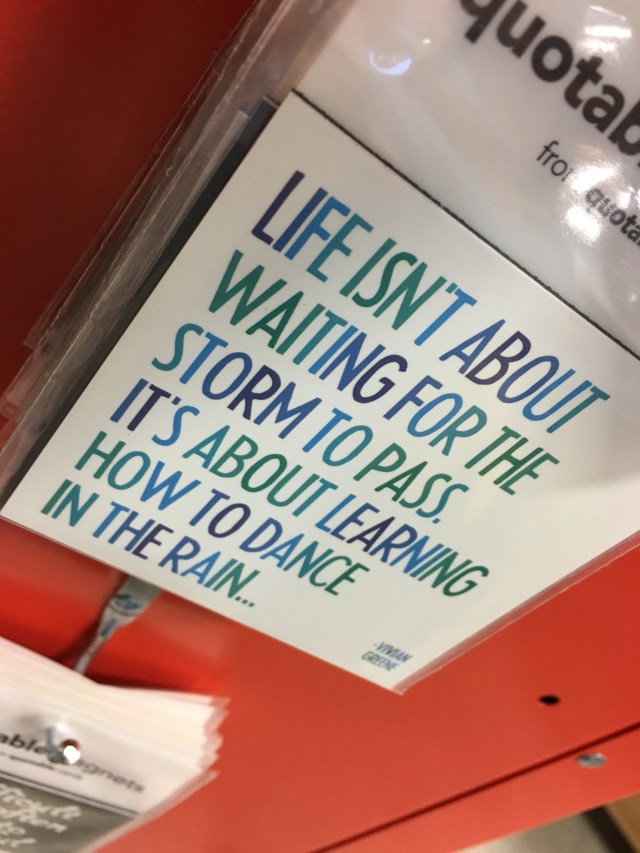 quotab
from quota
LIFE ISN'T ABOUT
WAITING FOR THE
STORM TO PASS.
IT'S ABOUT LEARNING
HOW TO DANCE
IN THE RAIN...
-VIVIAN
GREENE
able
gnets